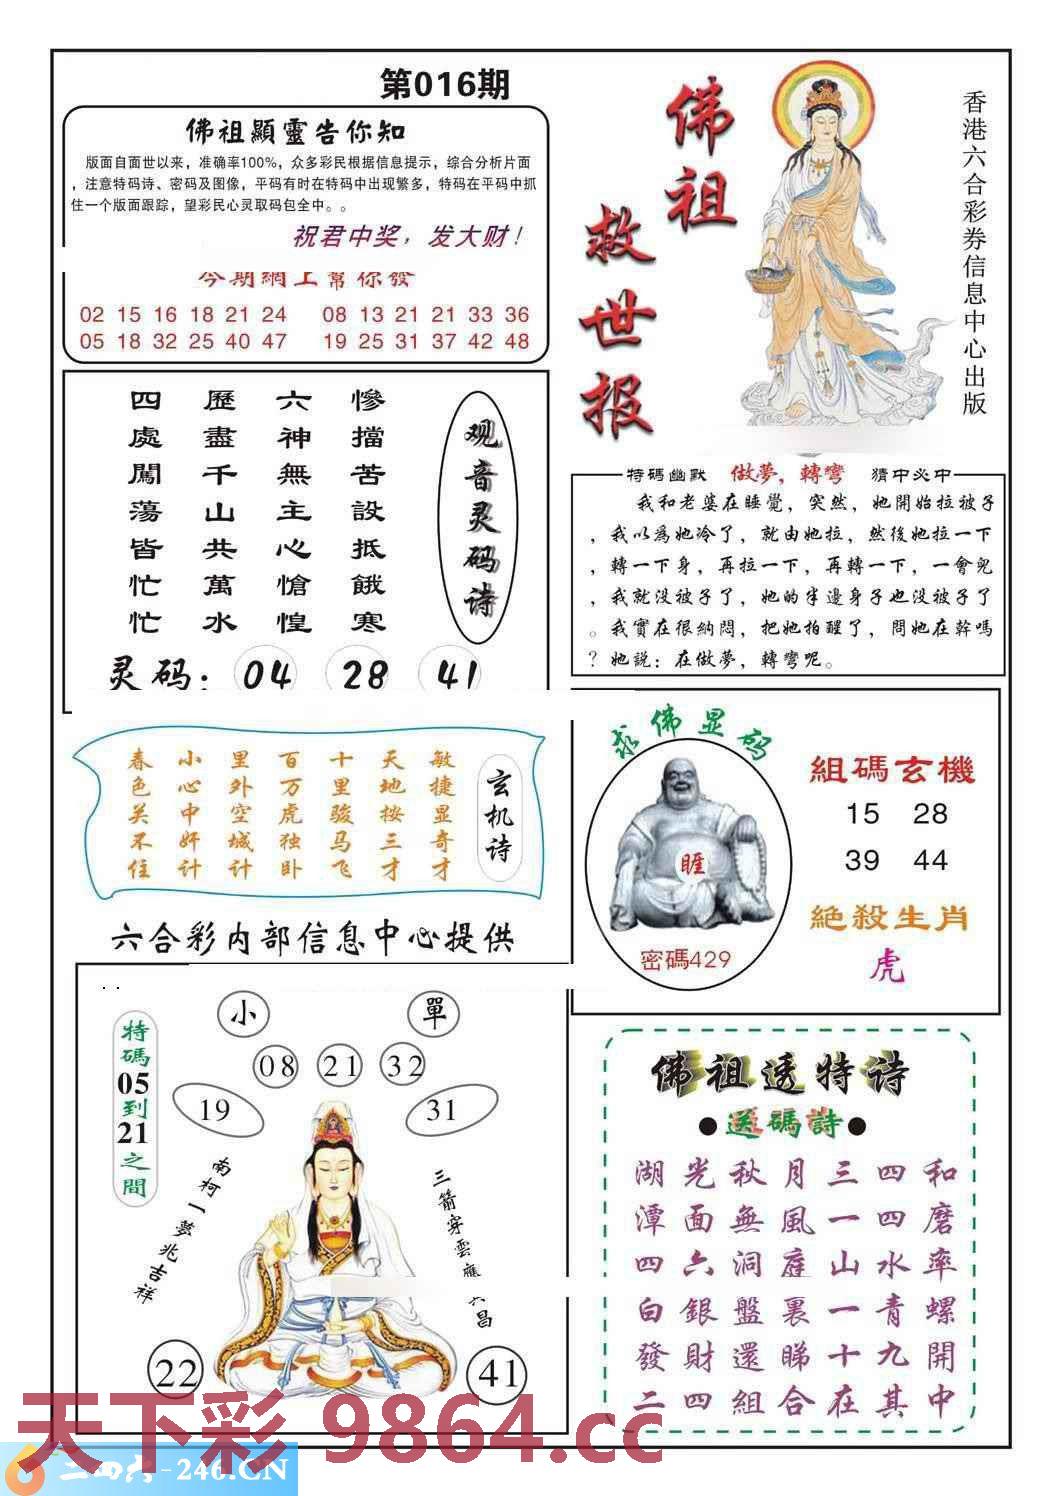 第016期
佛祖顯靈告你知
版面自面世以来，准确率100%，众多彩民根据信息提示，综合分析片面
，注意特码诗、密码及图像，平码有时在特码中出现繁多，特码在平码中抓
住一个版面跟踪，望彩民心灵取码包全中。。
祝君中奖，发大财！
今期網上幫你發
02 15 16 18 21 24 08 13 21 21 33 36
05 18 32 25 40 47 19 25 31 37 42 48
佛祖
救世报
香港六合彩券信息中心出版
慘擋苦設抵餓寒
六神無主心愴惶
歷盡千山共萬水
四處闖蕩皆忙忙
观音灵码诗
灵码：04 28 41
特碼幽默 做夢，轉彎 猜中必中
我和老婆在睡覺，突然，她開始拉被子
，我以為她冷了，就由她拉，然後她拉一下
，轉一下身，再拉一下，再轉一下，一會兒
，我就沒被子了，她的半邊身子也沒被子了
。我實在很納悶，把她拍醒了，問她在幹嗎
？她説：在做夢，轉彎呢。
玄机诗
敏捷显奇才
天地按三才
十里骏马飞
百万虎独卧
里外空城计
小心中奸计
春色关不住
六合彩内部信息中心提供
求佛显码
睚
密碼429
組碼玄機
15 28
39 44
絕殺生肖
虎
特碼05到21之間
小
單
08
21
32
19
31
南柯一夢兆吉祥
三箭穿雲應六昌
22
41
佛祖透特诗
●送碼詩●
湖光秋月三四和
潭面無風一四磨
四六洞庭山水率
白銀盤裏一青螺
發財還睇十九開
二四組合在其中
天下彩 9864.cc
二四六-246.CN